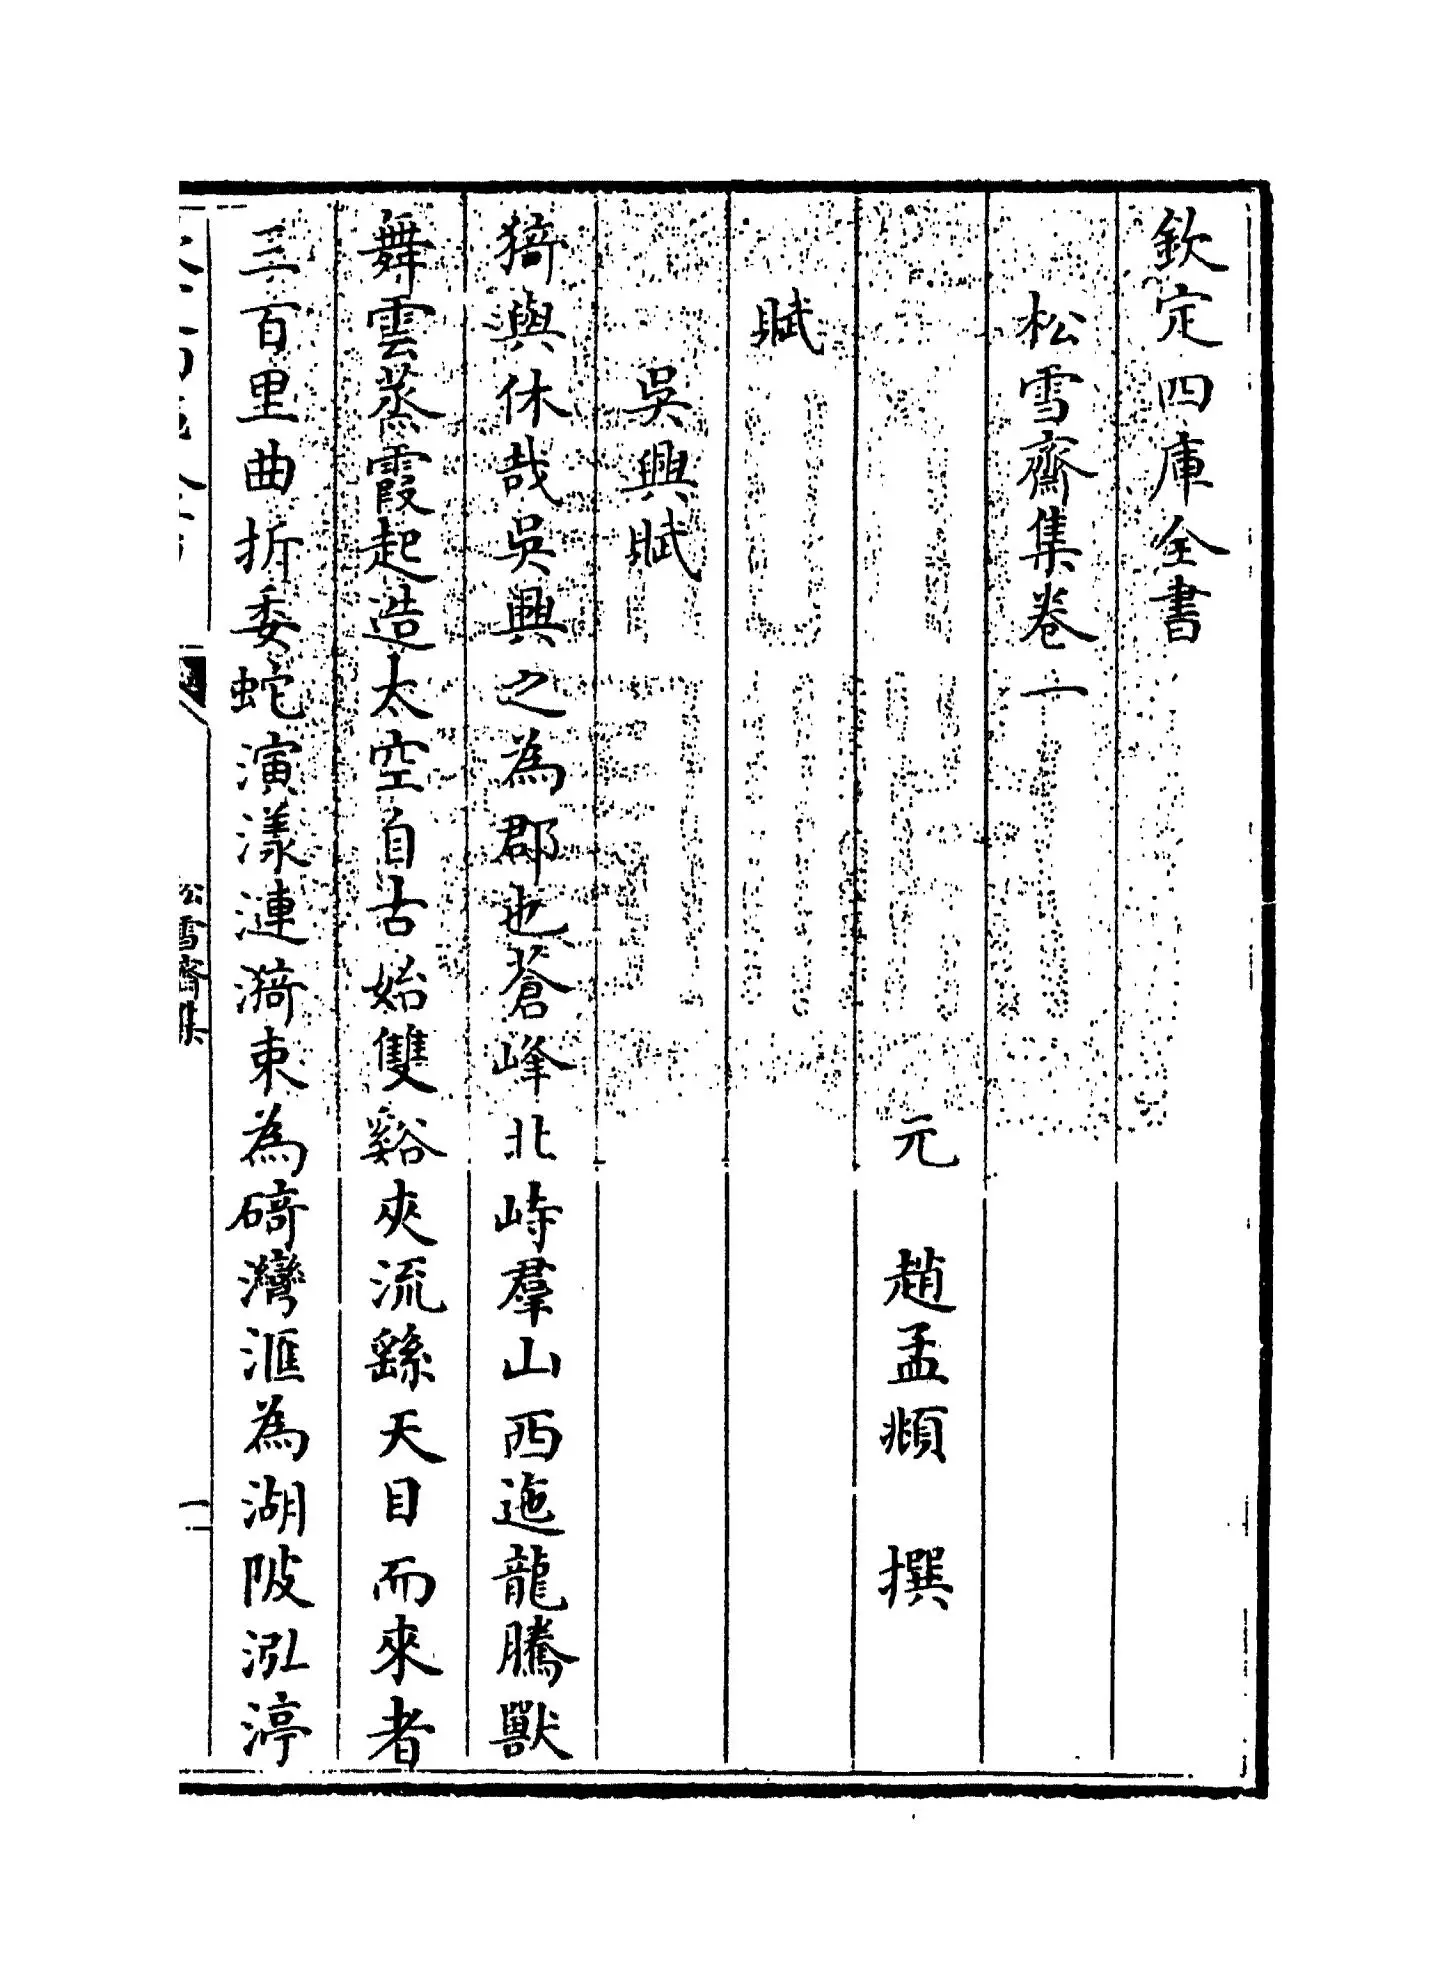 欽定四庫全書
松雪齋集卷一
元 趙孟頫 撰
賦
吳興賦
猗與休哉吳興之為郡也蒼峰北峙羣山西迤龍騰獸
舞雲蒸霞起造太空自古始雙谿夾流繇天目而來者
三百里曲折委蛇演漾漣漪束為碕灣滙為湖陂泓渟
松雪齋集
一